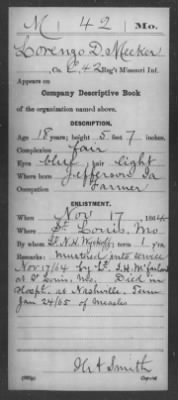 M | 42 | Mo.
Lorenzo D. Meeker
, Co. C, 42 Reg't Missouri Inf.
Appears on
Company Descriptive Book
of the organization named above.
DESCRIPTION.
Age 18 years; height 5 feet 7 inches.
Complexion fair
Eyes blue; hair light
Where born Jefferson Ia
Occupation Farmer
ENLISTMENT.
When Nov 17, 1864
Where St. Louis, Mo
By whom Lt. N.H. Wyckoff; term 1 y'rs.
Remarks: Mustered into service
Nov 17/64 by Lt. J.H. McFarland
at St Louis, Mo. Died in
Hospt. at Nashville, Tenn
Jan 24/65 of Measles
Smith
Copyist.